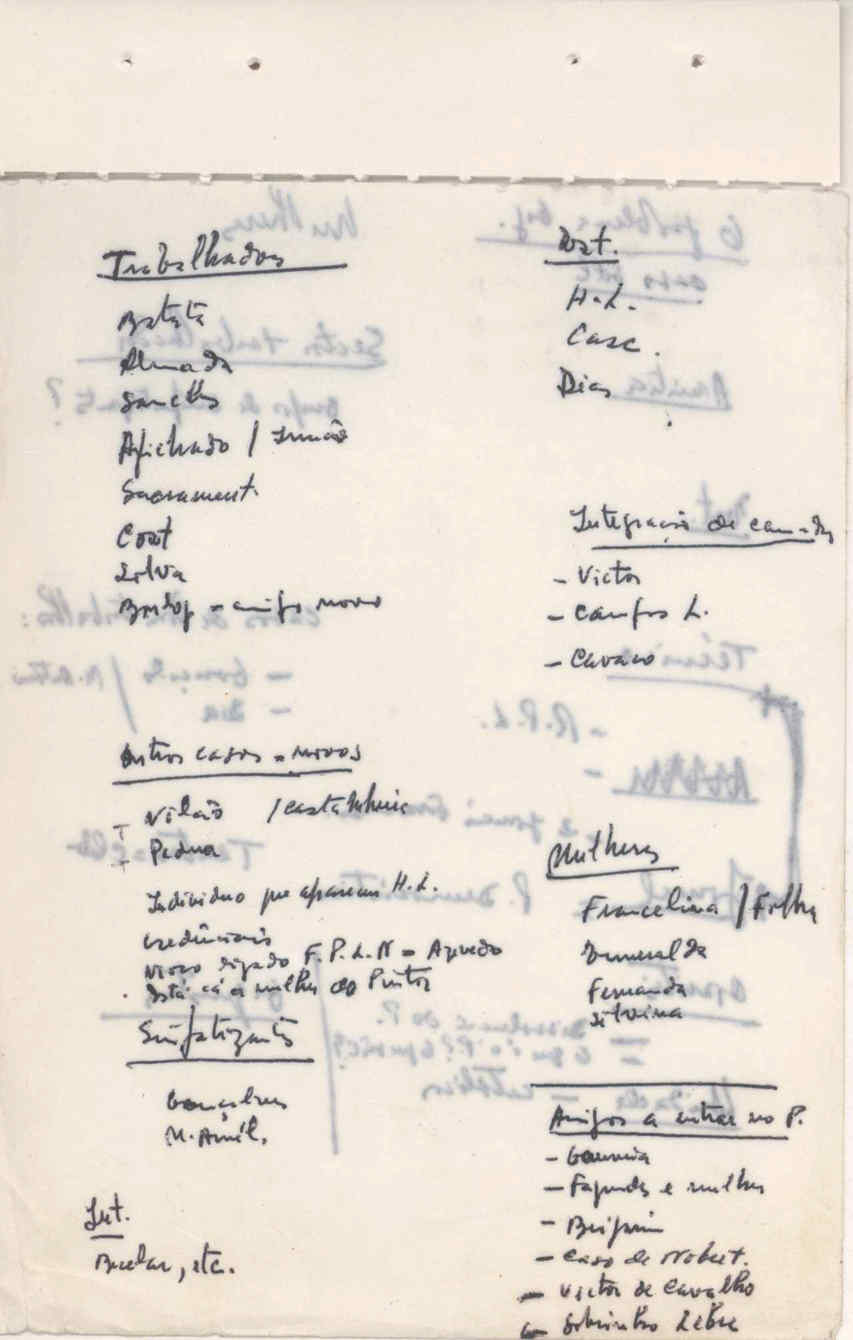 Trabalhadores
Batata
Almada
Sanches
Afilhado / Irmão
Sacrament.
Cost
Silva
amigo novo
Outros casos = novos
- Vilão / Castanheira
- Padua
Individuo que aparecem H. L.
credênciais
Novo ligado F. P. L. N = Azevedo
Está cá a mulher do Pintor
Simpatizantes
Gonçalves
M. Amil.
Int.
Bacelar, etc.
Dat.
H. L.
Casc.
Dias
Integração de
- Victor
- Campos L.
- Cavaco
Mulheres
Francelina / Filha
Esmeralda
Fernanda
Silvina
Amigos a entrar no P.
- Gouveia
- Fagundes e mulher
- Caso de Nobert.
- Victor de Carvalho
- Sobrinho Lebre